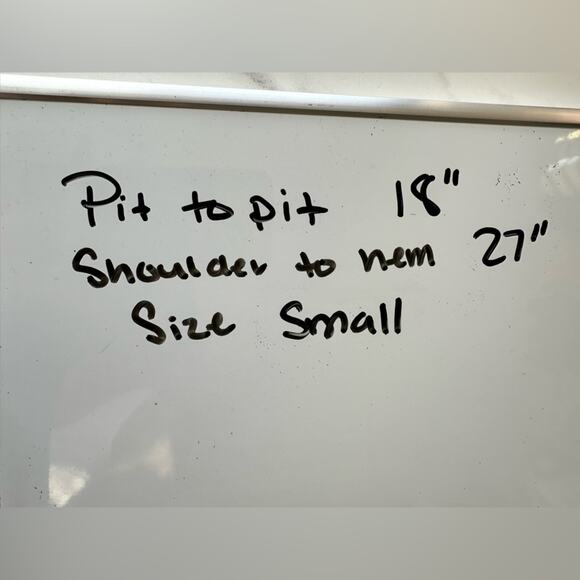 Pit to pit 18"
Shoulder to hem 27"
Size Small